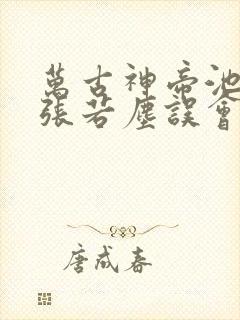 萬古神帝池
張若塵誤會
唐成春